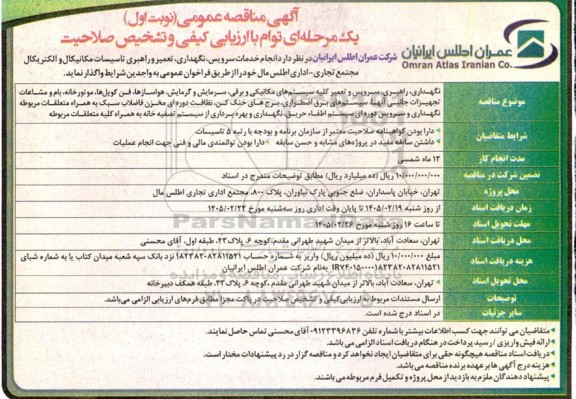 آگهی مناقصه عمومی (نوبت اول)
یک مرحله‌ای توام با ارزیابی کیفی و تشخیص صلاحیت
عمران اطلس ایرانیان
Omran Atlas Iranian Co.
شرکت عمران اطلس ایرانیان در نظر دارد انجام خدمات سرویس، نگهداری، تعمیر و راهبری تاسیسات مکانیکال و الکتریکال
مجتمع تجاری - اداری اطلس مال خود را از طریق فراخوان عمومی به واجدین شرایط واگذار نماید.
موضوع مناقصه
نگهداری، راهبری، سرویس و تعمیر کلیه سیستم‌های مکانیکی و برقی، سرمایش و گرمایش، هواسازها، فن کویل‌ها، موتورخانه، بام و مشاعات
تجهیزات جانبی آنها، سیستم‌های برق اضطراری، برج های خنک کن، نظافت دوره ای مخزن فاضلاب سبک به همراه متعلقات مربوطه
نگهداری و سرویس دوره ای سیستم اطفاء حریق، نگهداری و بهره برداری از سیستم تصفیه خانه به همراه کلیه متعلقات مربوطه
شرایط متقاضیان
دارا بودن گواهینامه صلاحیت معتبر از سازمان برنامه و بودجه با رتبه ۵ تاسیسات
داشتن سابقه مفید در پروژه‌های مشابه و حسن سابقه دارا بودن توانمندی مالی و فنی جهت انجام عملیات
مدت انجام کار
۱۲ ماه شمسی
تضمین شرکت در مناقصه
۱۰/۰۰۰/۰۰۰/۰۰۰ ریال (ده میلیارد ریال) مطابق توضیحات مندرج در اسناد
محل پروژه
تهران، خیابان پاسداران، ضلع جنوبی پارک نیاوران، پلاک ۸۰۰، مجتمع اداری تجاری اطلس مال
زمان دریافت اسناد
از روز شنبه ۱۴۰۵/۰۲/۱۹ تا پایان وقت اداری روز سه‌شنبه مورخ ۱۴۰۵/۰۲/۲۲
مهلت تحویل اسناد
تا ساعت ۱۶ روز شنبه مورخ ۱۴۰۵/۰۲/۲۶
محل دریافت اسناد
تهران، سعادت آباد، بالاتر از میدان شهید طهرانی مقدم، کوچه ۶، پلاک ۲۳، طبقه اول، آقای محسنی
هزینه دریافت اسناد
مبلغ ۱۰/۰۰۰/۰۰۰ ریال (ده میلیون ریال) واریز به شماره حساب ۱۸۲۳۸۲۰۸۲۸۱۱۵۲۱ نزد بانک سپه شعبه میدان کتاب یا به شماره شبای
به‌نام شرکت عمران اطلس ایرانیان
محل تحویل اسناد
تهران، سعادت آباد، بالاتر از میدان شهید طهرانی مقدم، کوچه ۶، پلاک ۲۳، طبقه همکف دبیرخانه
توضیحات
ارسال مستندات مربوط به ارزیابی کیفی و تشخیص صلاحیت در پاکت مجزا مطابق فرم‌های ارزیابی الزامی می‌باشد.
سایر جزئیات
در اسناد درج شده است.
متقاضیان می توانند جهت کسب اطلاعات بیشتر با شماره تلفن ۰۹۱۲۳۳۹۶۸۳۶ آقای محسنی تماس حاصل نمایند.
ارائه فیش واریزی / رسید پرداخت در هنگام دریافت اسناد الزامی می باشد.
دریافت اسناد مناقصه هیچگونه حقی برای متقاضیان ایجاد نخواهد کرد و مناقصه گزار در رد پیشنهادات مختار است.
هزینه درج آگهی ها بر عهده برنده مناقصه می باشد.
پیشنهاد دهندگان ملزم به بازدید از محل پروژه و تکمیل فرم مربوطه می باشند.